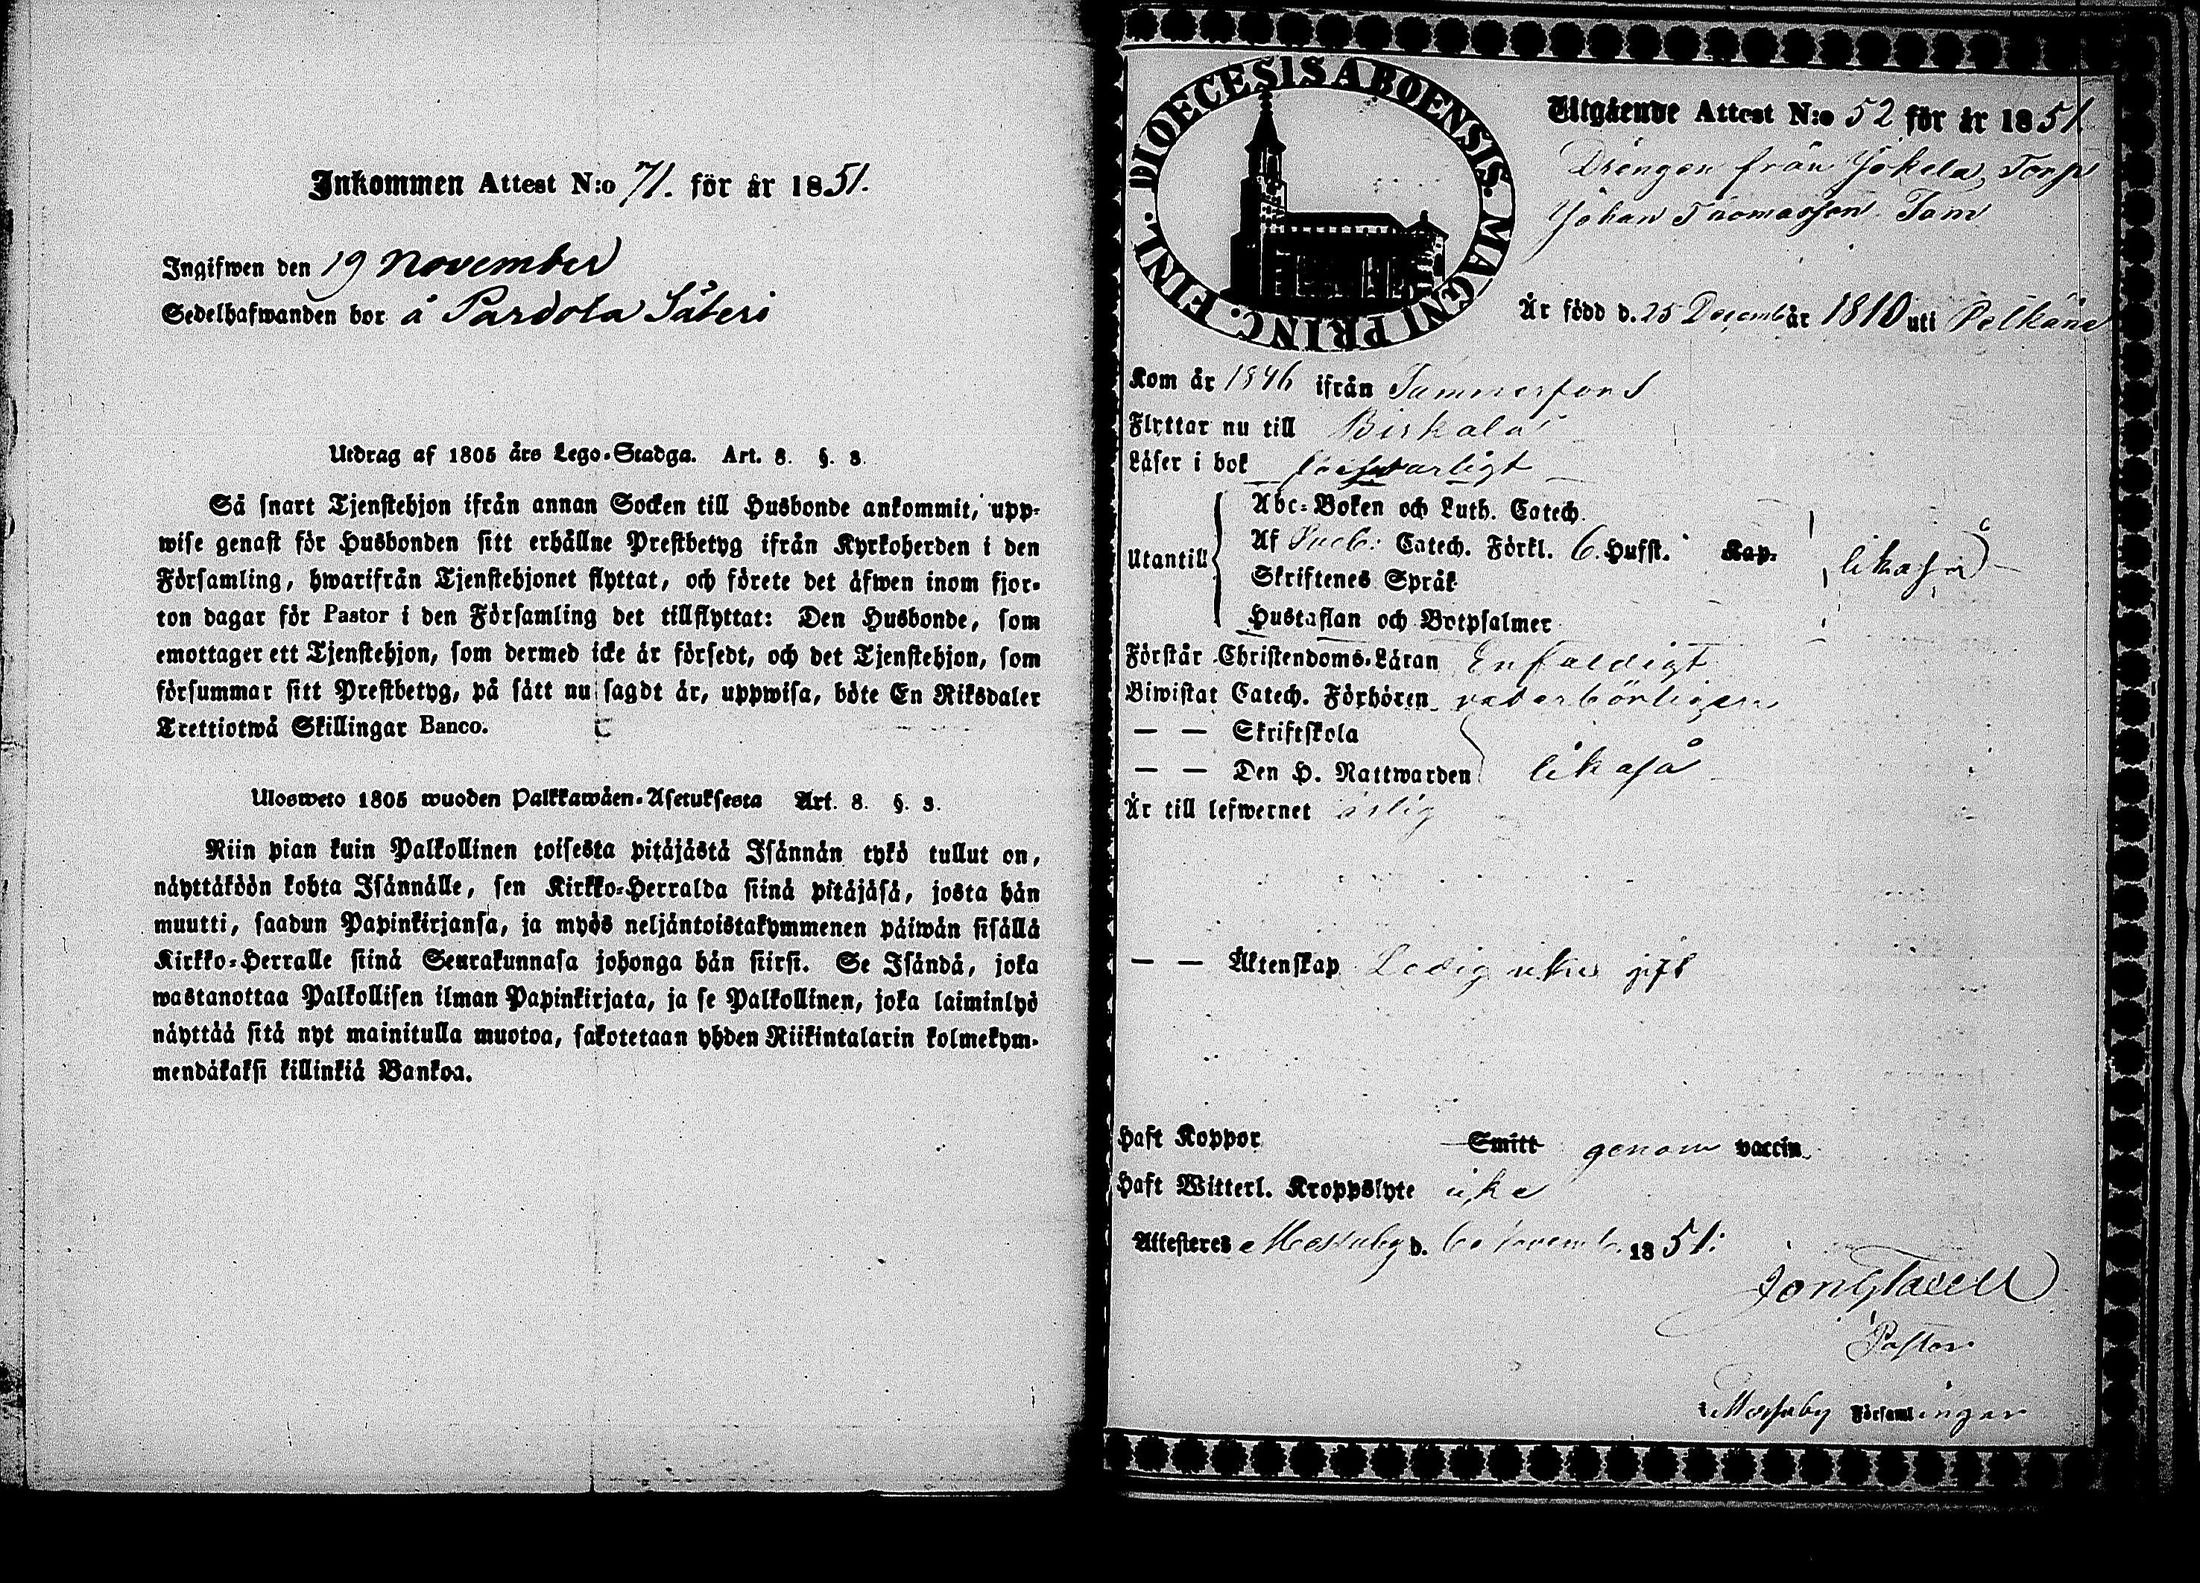 Inkommen Attest N:o 71. för år 1851.
Ingifwen den 19 November
Sedelhafwanden bor å Pardola Säteri
Utdrag af 1805 års Lego-Stadga. Art. 8. §. 3.
Så snart Tjenstehjon ifrån annan Socken till Husbonde ankommit, upp-
wise genast för Husbonden sitt erhållne Prestbetyg ifrån Kyrkoherden i den
Församling, hwarifrån Tjenstehjonet flyttat, och förete det äfwen inom fjor-
ton dagar för Pastor i den Församling det tillflyttat: Den Husbonde, som
emottager ett Tjenstehjon, som dermed icke är försedt, och det Tjenstehjon, som
försummar sitt Prestbetyg, på sätt nu sagdt är, uppwisa, böte En Riksdaler
Trettiotwå Skillingar Banco.
Ulosweto 1805 wuoden Palkkawäen-Asetuksesta Art. 8. §. 3.
Niin pian kuin Palkollinen toisesta pitäjästä Isännän tykö tullut on,
näyttäköön kohta Isännälle, sen Kirkko-Herralda siinä pitäjäsä, josta hän
muutti, saadun Papinkirjansa, ja myös neljäntoistakymmenen päiwän sisällä
Kirkko-Herralle siinä Seurakunnasa johonga hän siirsi. Se Isändä, joka
wastanottaa Palkollisen ilman Papinkirjata, ja se Palkollinen, joka laiminlyö
näyttää sitä nyt mainitulla muotoa, sakotetaan yhden Riikintalarin kolmekym-
mendäkaksi killinkiä Bankoa.
DIOECESIS ABOENSIS. MAGNI PRINC. FINL.
Utgående Attest N:o 52 för år 1851
Drengen från Jokela Torp
Johan Thomasson Tam
Är född d. 25 Decemb år 1810 uti Pelkäne
Kom år 1846 ifrån Tammerfors
Flyttar nu till Birkala
Läser i bok försvarligt
Utantill
Abc-Boken och Luth. Catech.
Af Sueb: Catech. Förkl. 6. Hufst. Kap.
Skriftenes Språk
Hustaflan och Botpsalmer
likaså
Förstår Christendoms-Läran Enfaldigt
Biwistat Catech. Förhören vederbörligen
— — Skriftskola
— — Den H. Nattwarden
likaså
Är till lefwernet ärlig
— — Äktenskap Ledig icke gift
Haft Koppor Smitt genom vaccin.
Haft Witterl. Kroppslyte icke
Attesteras Messuby d. 6 Novemb. 1851:
Pastor
Messuby Församlingar